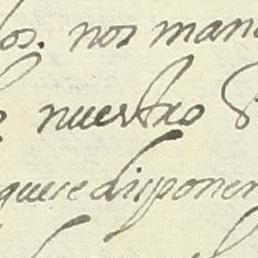 os. nos man
nuestro
que se disponen